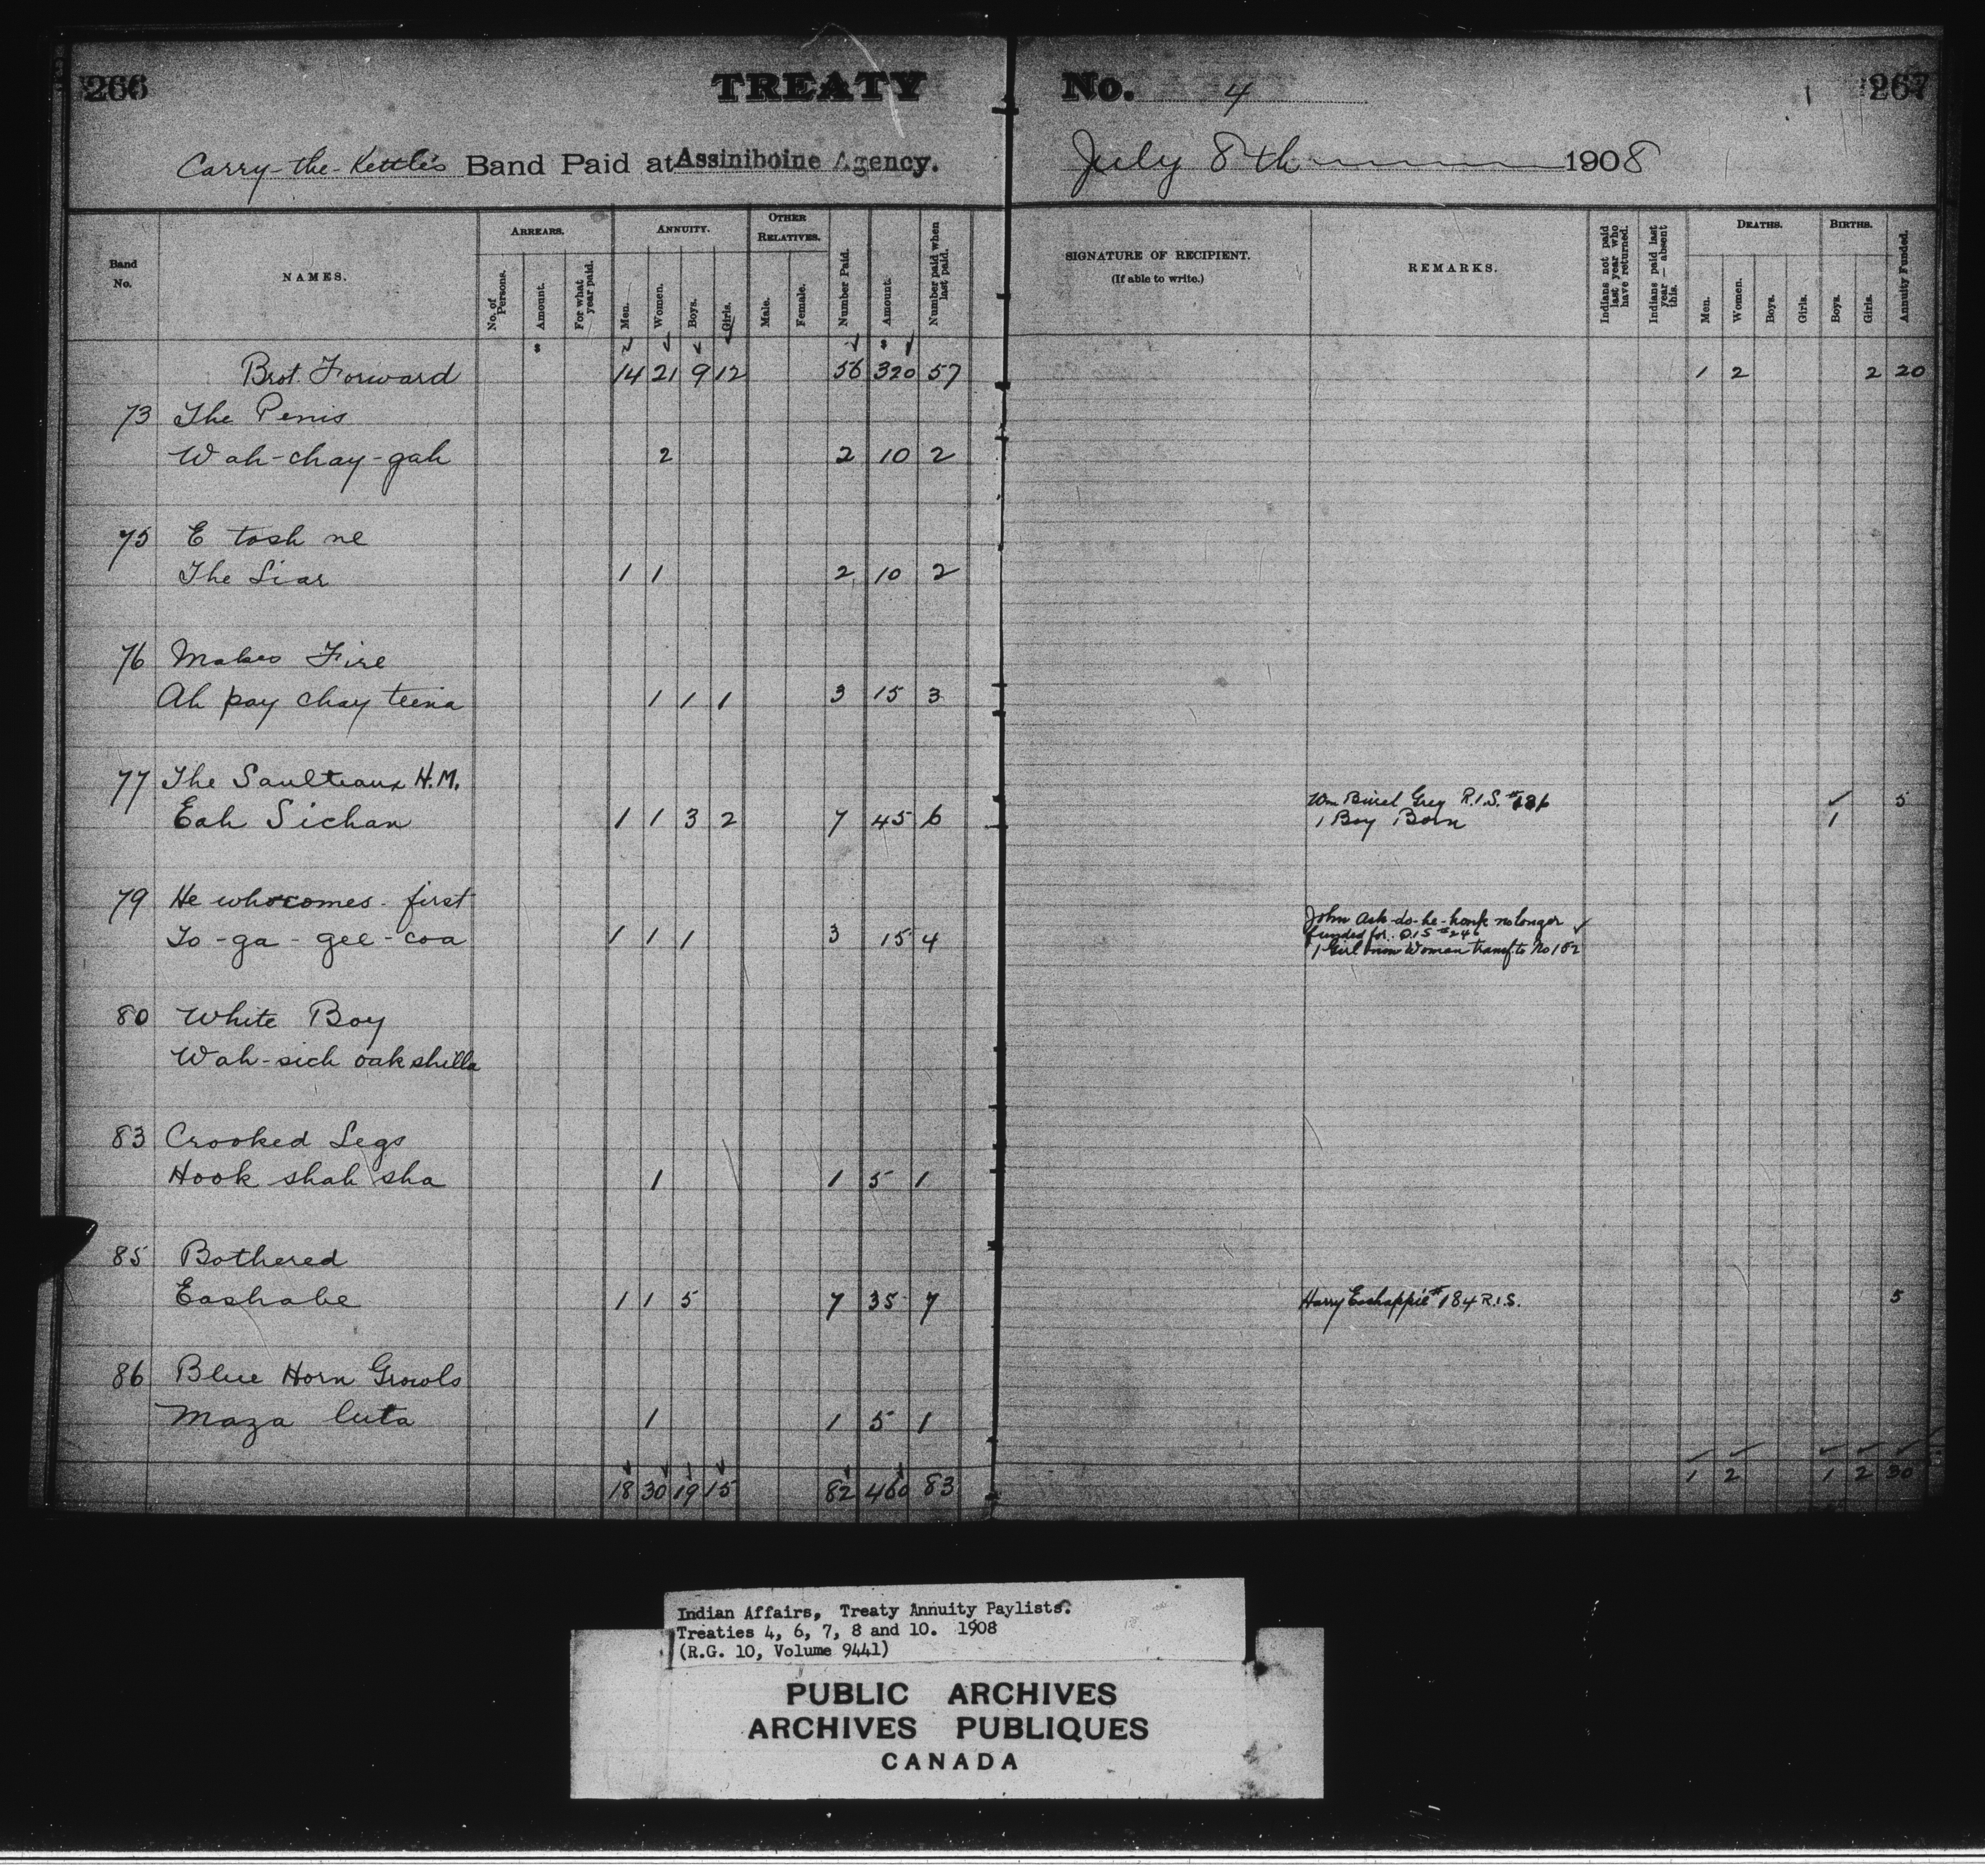 266 TREATY No. 4 267
Carry-the-Kettle's Band Paid at Assiniboine Agency. July 8th 1908
Band No.
NAMES.
ARREARS.
No. of Persons.
Amount.
For what year paid.
ANNUITY.
Men.
Women.
Boys.
Girls.
OTHER RELATIVES.
Male.
Female.
Number Paid.
Amount.
Number paid when last paid.
SIGNATURE OF RECIPIENT.
(If able to write.)
REMARKS.
Indians not paid last year who have returned.
Indians paid last year — absent this.
DEATHS.
Men.
Women.
Boys.
Girls.
BIRTHS.
Boys.
Girls.
Annuity Funded.
Brot. Forward 14 21 9 12 56 320 57 1 2 2 20
73 The Penis
Wah-chay-gah 2 2 10 2
75 E tash ne
The Liar 1 1 2 10 2
76 Makes Fire
Ah pay chay teena 1 1 1 3 15 3
77 The Saulteaux H.M. Wm Grey R.I.S. # ✓ 5
Eah Sichan 1 1 3 2 7 45 6 1 Boy Born 1
79 He who comes-first John no longer ✓
funded for
To-ga-gee-coa 1 1 1 3 15 4 1 Girl now Woman transf. to No 102
80 White Boy
Wah-sich oakshilla
83 Crooked Legs
Hook shah sha 1 1 5 1
85 Bothered
Eashabe 1 1 5 7 35 7 Harry Eashappie #184 R.I.S. 5
86 Blue Horn Growls
Maza luta 1 1 5 1
18 30 19 15 82 460 83 1 2 1 2 30
Indian Affairs, Treaty Annuity Paylists.
Treaties 4, 6, 7, 8 and 10. 1908
(R.G. 10, Volume 9441)
PUBLIC ARCHIVES
ARCHIVES PUBLIQUES
CANADA